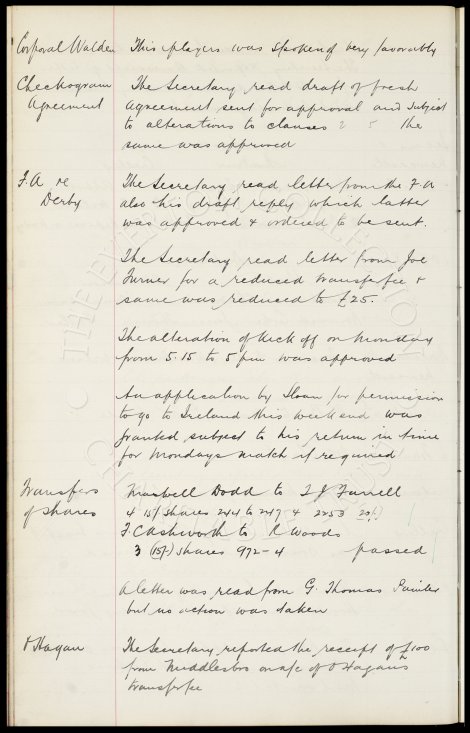 Corporal Walden This players was spoken of very favorably
Checkogram The Secretary read draft of fresh
Agreement agreement sent for approval and subject
to alterations to clauses 2 5 the
same was approved
F.A re The Secretary read letter from the F.A.
Derby also his draft reply which latter
was approved & ordered to be sent.
The Secretary read letter from Joe
Turner for a reduced transfer fee &
same was reduced to £25.
The alteration of kick off on Monday
from 5.15 to 5 pm was approved
An application by Sloan for permission
to go to Ireland this weekend was
granted subject to his return in time
for Mondays match if required
Transfers Maxwell Dodd to T J Farrell
of shares 4 15/ shares 244 to 247 & 2253
F. C Ashworth to R Woods
3 (15/-) shares 972-4 passed
A letter was read from G. Thomas Painter
but no action was taken
O Hagan The Secretary reported the receipt of £100
from Middlesbro on a/c of O Hagan's
transfer fee
THE EVERTON COLLECTION
CHARITABLE TRUST